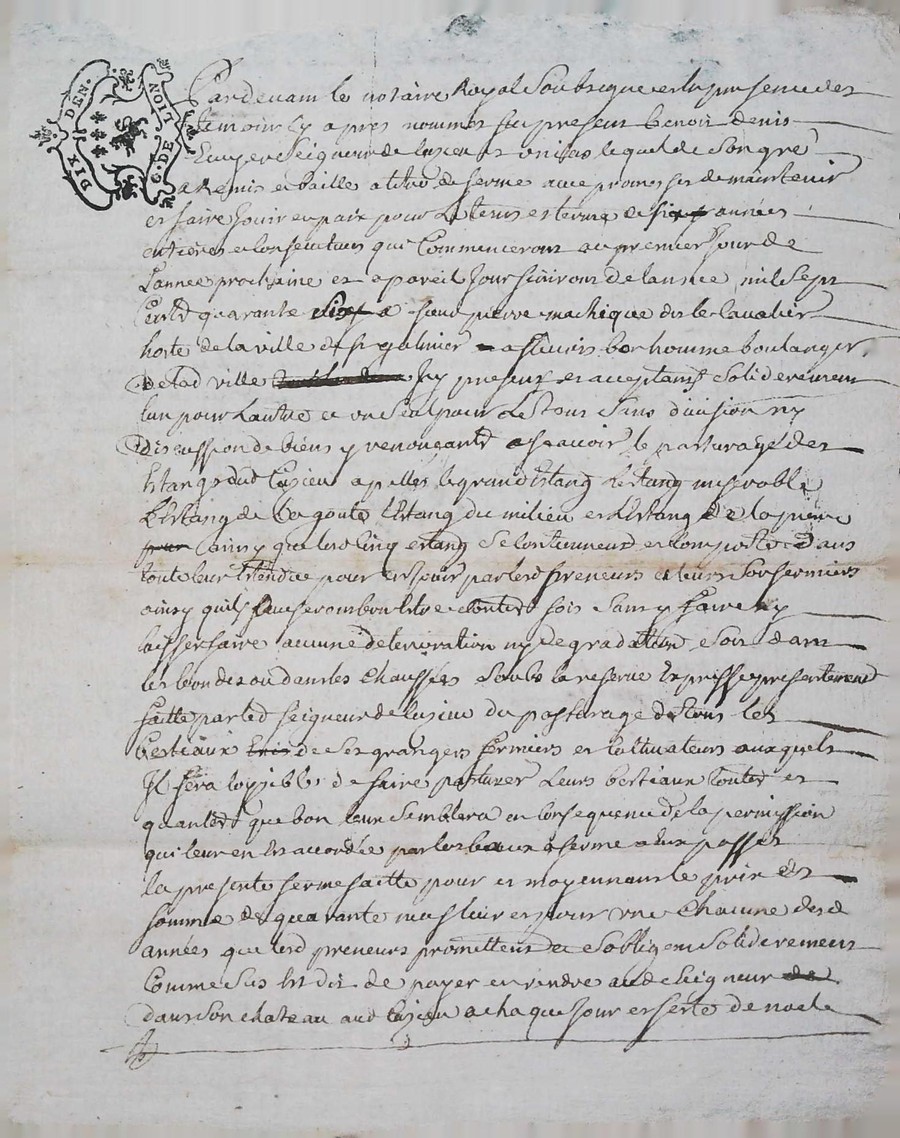 DIX DEN. G. DE LION
Pardevant le notaire Royal Soubsigne et en presence des
temoins cy apres nommes fut present benoit denis
Ecuyer Seigneur de Cuzieu et unias lequel de Son gre
a Remis et baille a titre de ferme avec promesses de maintenir
et faire Jouir en paix pour le tems et terme de six années
entieres et Consecutives qui Commenceront au premier Jour de
L'année prochaine et a pareil Jour finiront de l'année mil Sept
Cent quarante a sieur pierre machique dit le Cavalier
hoste de la ville de st galmier a bonhomme boulanger
de lad ville Icy present et acceptants Soliderement
lun pour Lautre et un Seul pour Le tout Sans division ny
discussion de biens y renonçants a scavoir le pasturage des
Estangs dud Cuzieu apelles le grand Estang L'estang improbable
L'Estang de la goute L'Estang du milieu et L'Estang de la
ainsy que lesd Cinq estangs Se Contiennent et Comportent dans
toute leur Etendue pour en Jouir par lesd preneurs et leurs Sousfermiers
ainsy quils bon toutes fois Sans y faire ny
laisser faire aucune deterioration ny degradation Soit dans
les bondes ou dans les Chaussées Soubs la reserve Expresse presentement
faitte par led Seigneur de Cuzieu du pasturage de tous les
bestiaux de Ses grangers fermiers et Cultivateurs auxquels
Il Sera loysible de faire pasturer Leurs bestiaux toutes et
quantes que bon leur Semblera en Consequence de la permission
qui leur en Est accordée par les baux a ferme a Eux passes
la presente ferme faitte pour et moyennant le prix et
somme de quarante neuf livres pour une Chacune desd
années que lesd preneurs promettent et Sobligent Soliderement
Comme Sus Est dit de payer et rendre aud Seigneur
dans Son chateau aud Cuzieu a chaque Jour et feste de noel